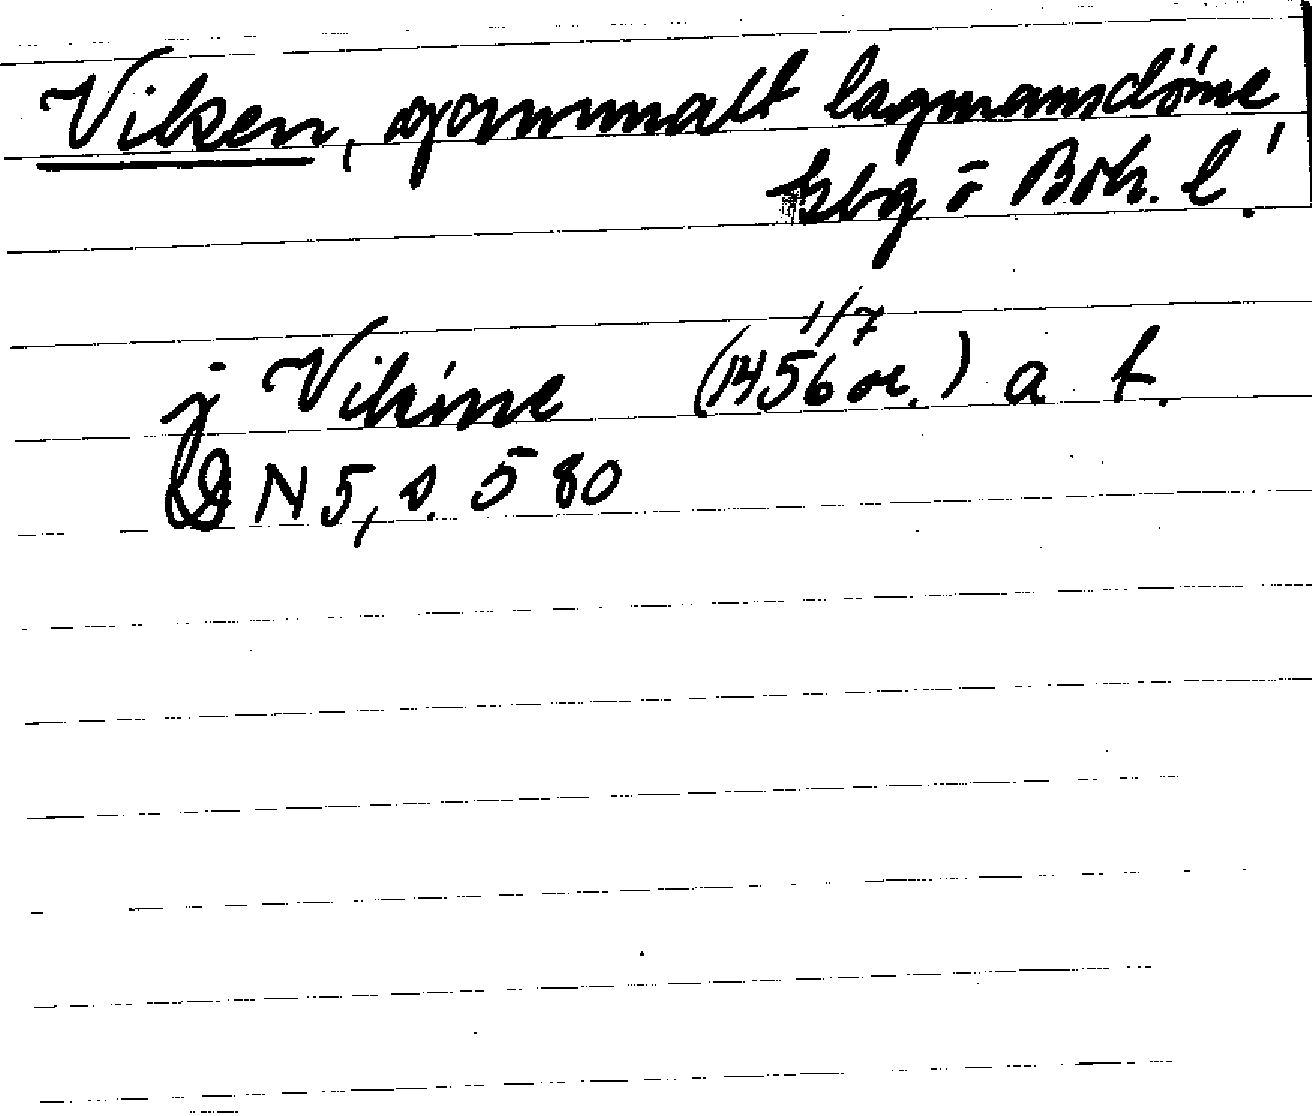 Viken, gammalt lagmansdöme
kbg o Boh. l.
j Vikine (1456 1/7 or.) a f.
DN 5, s. 580